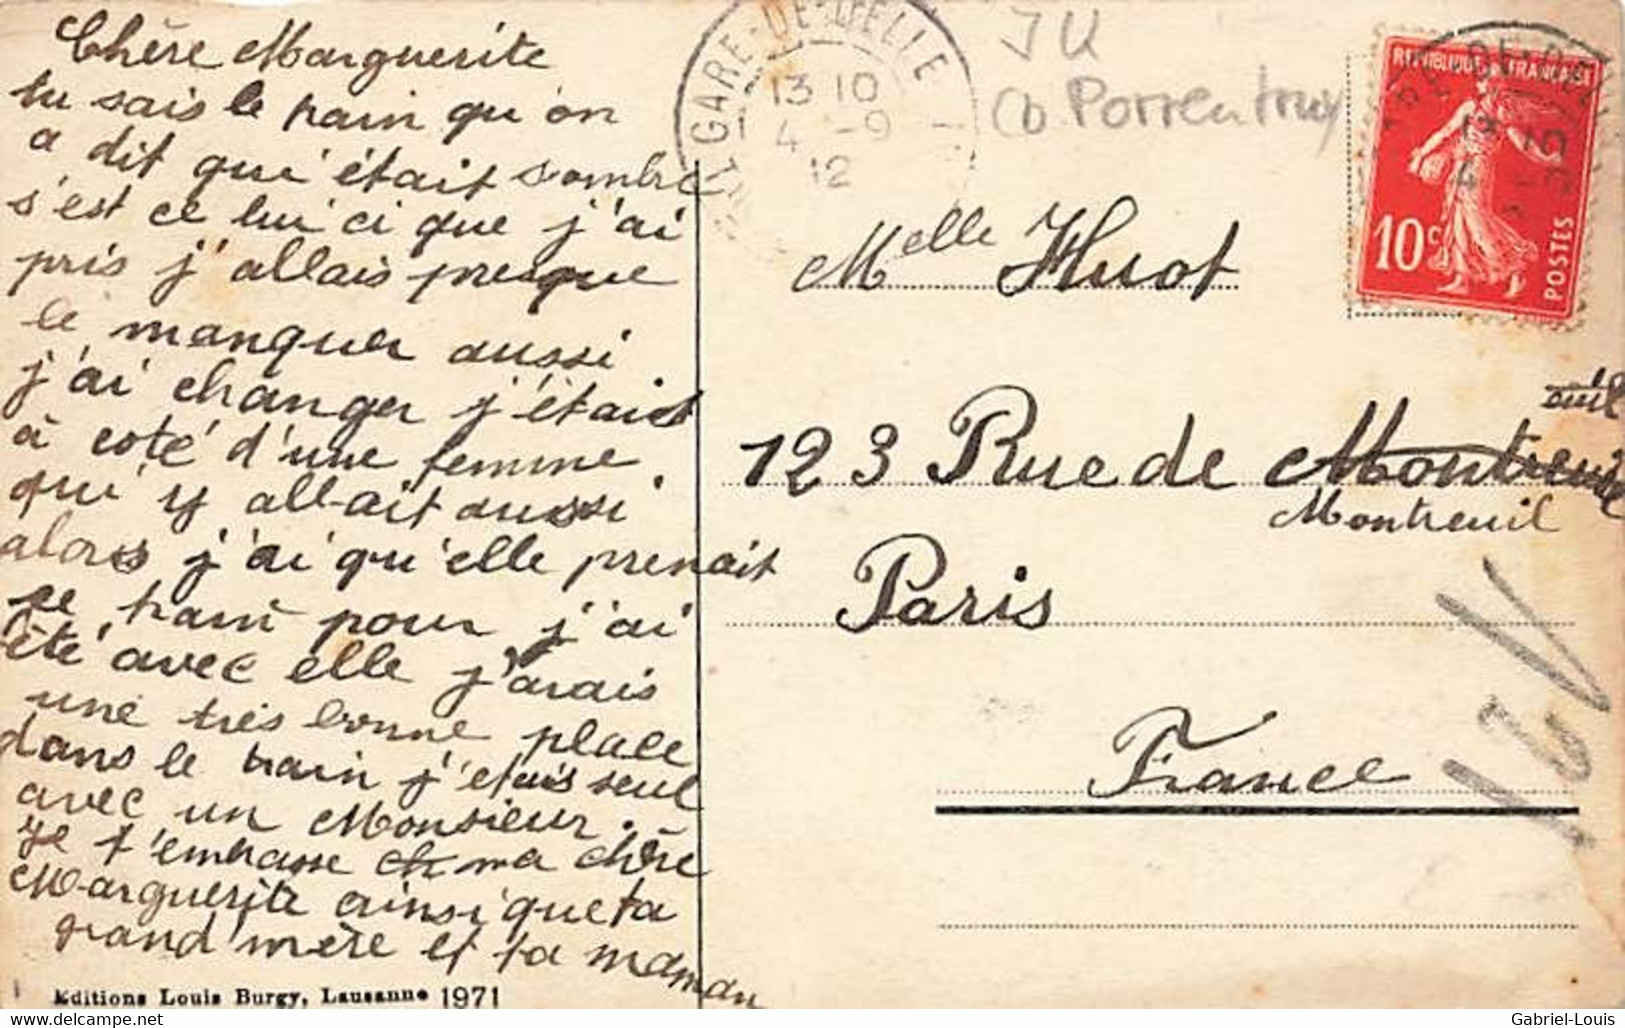 Chère Marguerite
tu sais le train qu'on
a dit qui était sombre
s'est ce lui ci que j'ai
pris j'allais presque
le manquer aussi
j'ai changer j'étais
à coté d'une femme
qui y allait aussi
alors j'ai qu'elle prenait
ce train pour j'ai
été avec elle j'avais
une très bonne place
dans le train j'étais seul
avec un Monsieur.
je t'embrasse ch ma chère
Marguerite ainsi que ta
grand'mère et ta maman
Editions Louis Burgy, Lausanne 1971
GARE-DE-DELLE
13 10
4 -9
12
JU
Porrentruy
REPUBLIQUE FRANÇAISE
10c
POSTES
Melle Huot
123 Rue de
Montreuil
Paris
France
Gabriel-Louis